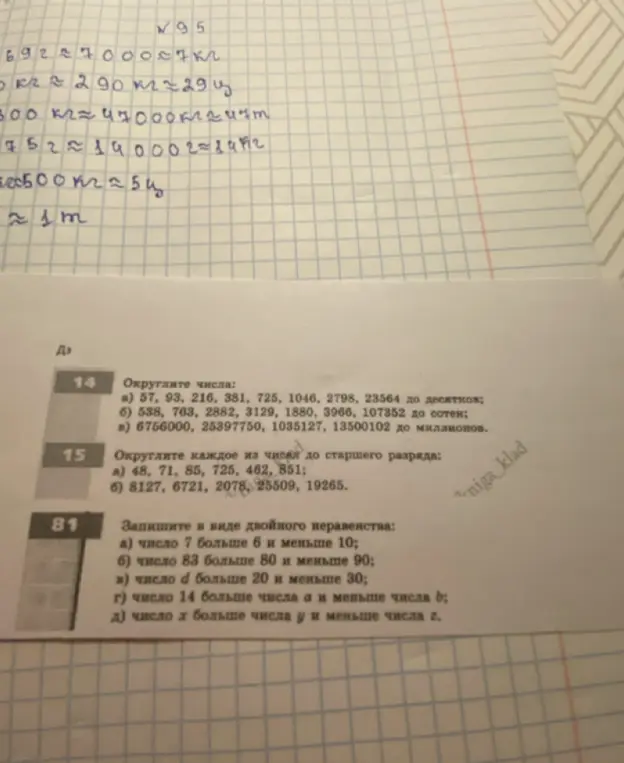 № 95
69 г ≈ 7000 ≈ 7 кг
0 кг ≈ 290 кг ≈ 29 ц
300 кг ≈ 47000 кг ≈ 47 т
75 г ≈ 14000 г ≈ 14 кг
500 кг ≈ 5 ц
≈ 1 т
Дз
14 Округлите числа:
а) 57, 93, 216, 381, 725, 1046, 2798, 23564 до десятков;
б) 538, 763, 2882, 3129, 1880, 3966, 107352 до сотен;
в) 6756000, 25397750, 1035127, 13500102 до миллионов.
15 Округлите каждое из чисел до старшего разряда:
а) 48, 71, 85, 725, 462, 851;
б) 8127, 6721, 2078, 25509, 19265.
81 Запишите в виде двойного неравенства:
а) число 7 больше 6 и меньше 10;
б) число 83 больше 80 и меньше 90;
в) число d больше 20 и меньше 30;
г) число 14 больше числа a и меньше числа b;
д) число x больше числа y и меньше числа z.